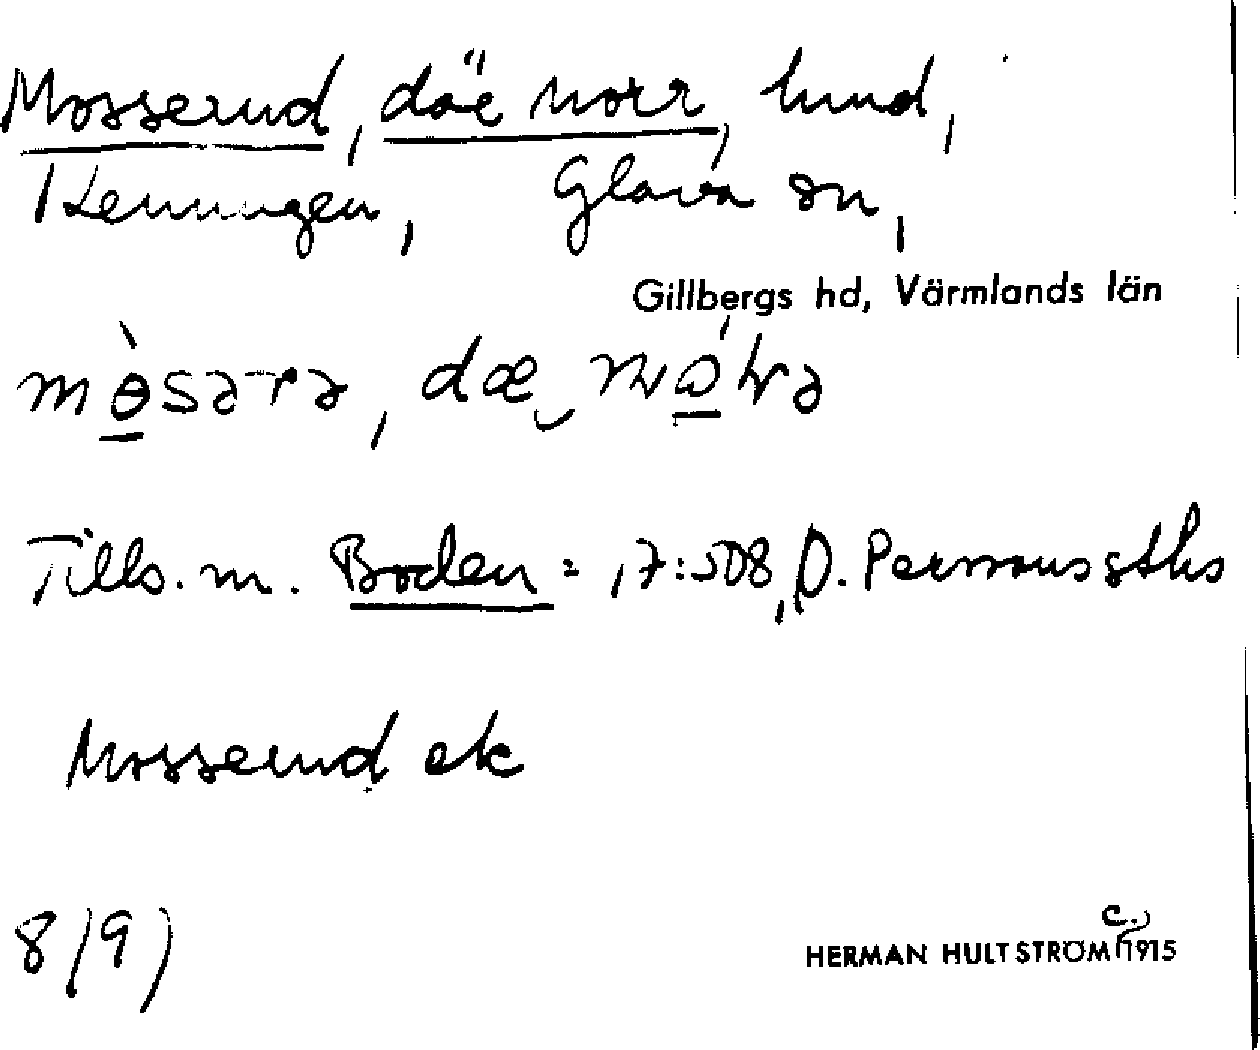 Mosserud, däe norr, hmd,
Henningen, Glava sn,
Gillbergs hd, Värmlands län
Tills. m. Boden = 17:508, D. Perssons sths
Mosserud ek
8/9)
HERMAN HULTSTRÖM c. 1915